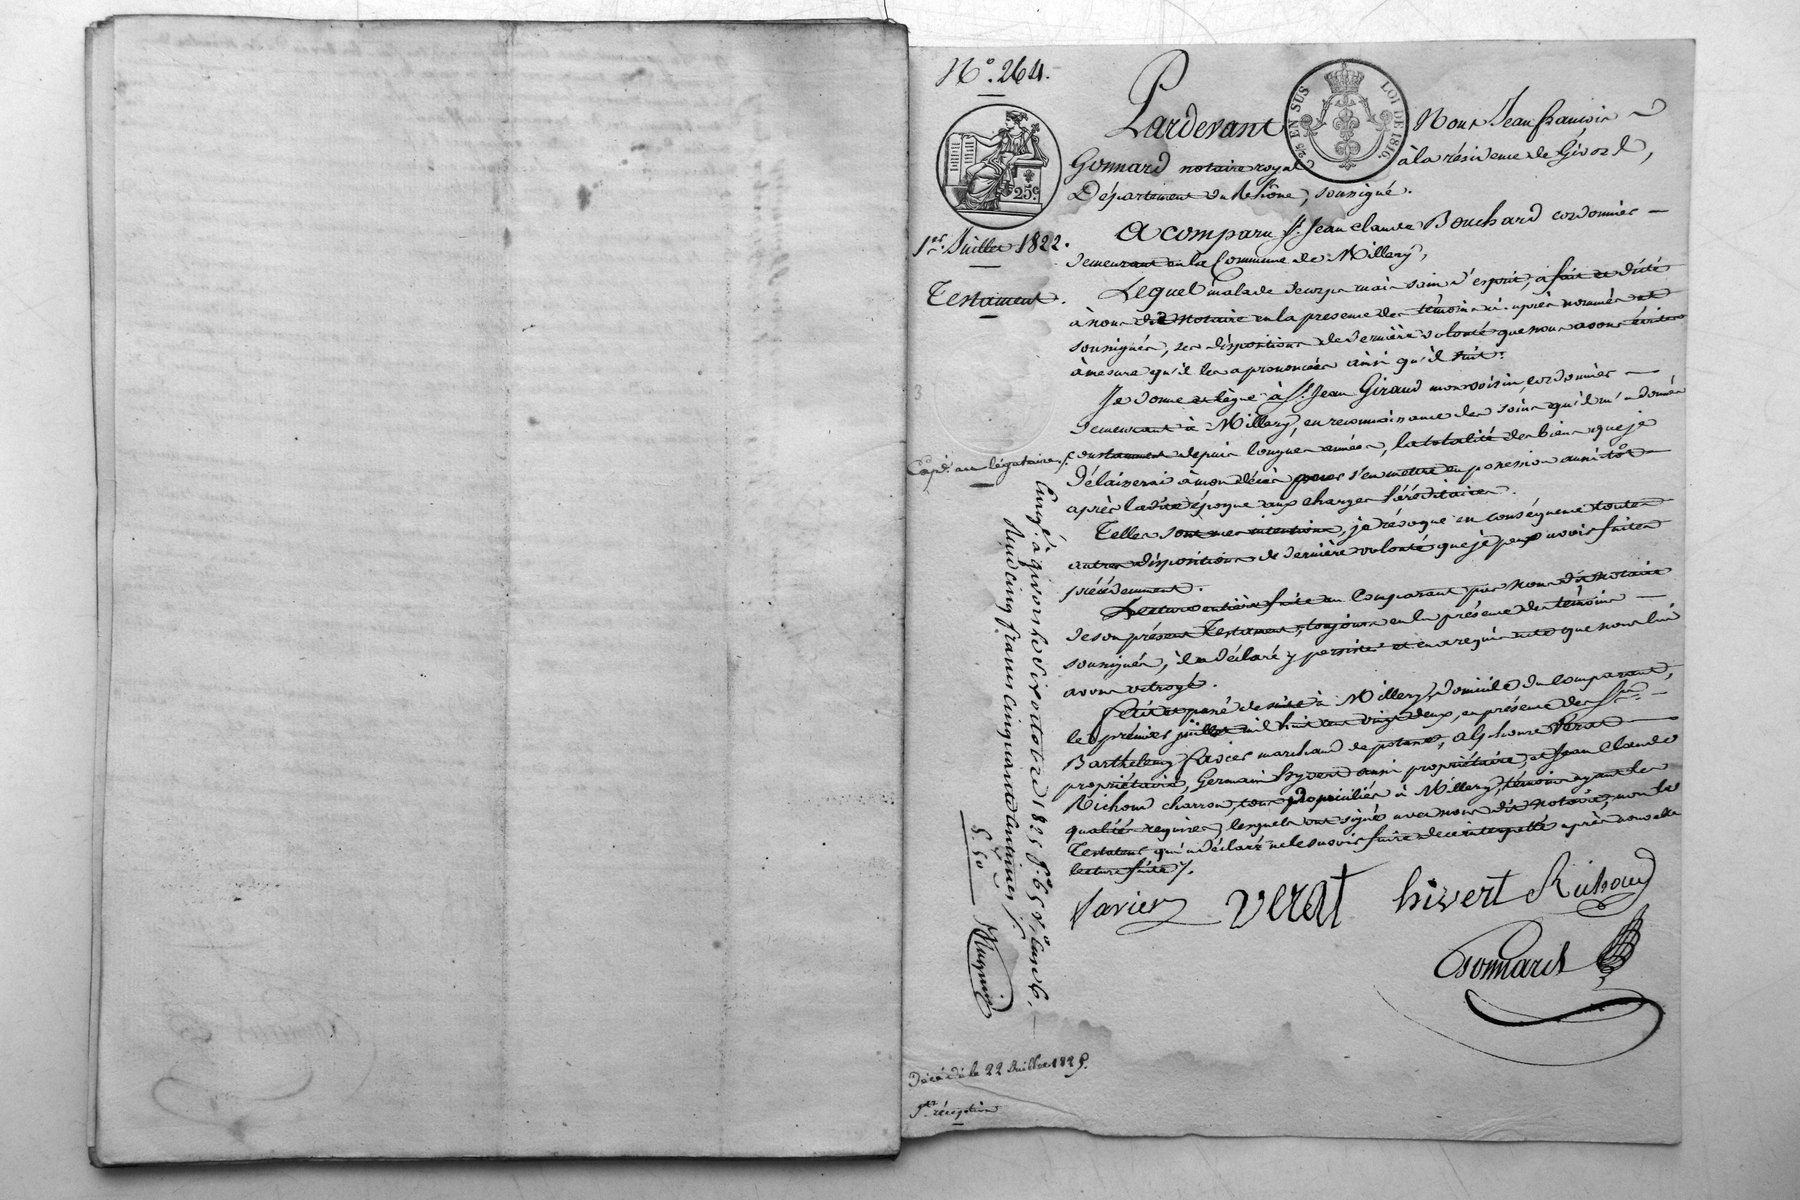 N.º 264.
25c
1er. Juillet 1822.
Testament.
Expd. au légataire
C. 25 EN SUS
LOI DE 1816.
Pardevant Nous Jean françois
Gonnard notaire royal à la résidence de Givors,
Département du Rhône, soussigné.
A comparu Sr. Jean Claude Bouchard cordonnier
demeurant en la Commune de Millery,
Lequel malade de corps mais sain d'esprit, a fait et dicté
à nous dit Notaire en la presence des témoins ci-après nommés et
soussignés, ses dispositions de dernière volonté que nous avons écrites
à mesure qu'il les a prononcées ainsi qu'il suit.
Je donne et lègue à Sr. Jean Giraud mon voisin, cordonnier
demeurant à Millery, en reconnaissance des soins qu'il m'a donnés
constamment depuis longues années, la totalité des biens que je
délaisserai à mon décès pour s'en mettre en possession aussitôt
après ladite époque aux charges héréditaires.
Telles sont mes intentions, je révoque en conséquence toutes
autres dispositions de dernière volonté que je peux avoir faites
précédemment.
Lecture entière faite au Comparant par nous dit Notaire
de son présent Testament, toujours en la présence des témoins
soussignés, il a déclaré y persister et en a requis acte que nous lui
avons octroyé.
Fait et passé de suite à Millery, domicile du comparant,
le premier juillet mil huit cent vingt deux, en présence des Srs.
Barthelemy favier marchand de, alphonse Verat
propriétaire, Germain hyvert aussi propriétaire, et Jean Claude
Richoud charron, tous domiciliés à Millery, témoins ayant les
qualités requises, lesquels ont signé avec nous dit Notaire, non le
Testateur qui a déclaré ne le savoir faire de ce interpellé après nouvelle
lecture faite.
favier verat hivert Richoud
Gonnard
Enrgé. à givors le six octobre 1825 fo. 65 Vo. case 6.
Reçu cinq francs cinquante centimes
5.50
Décédé le 22 Juillet 1825.
réception